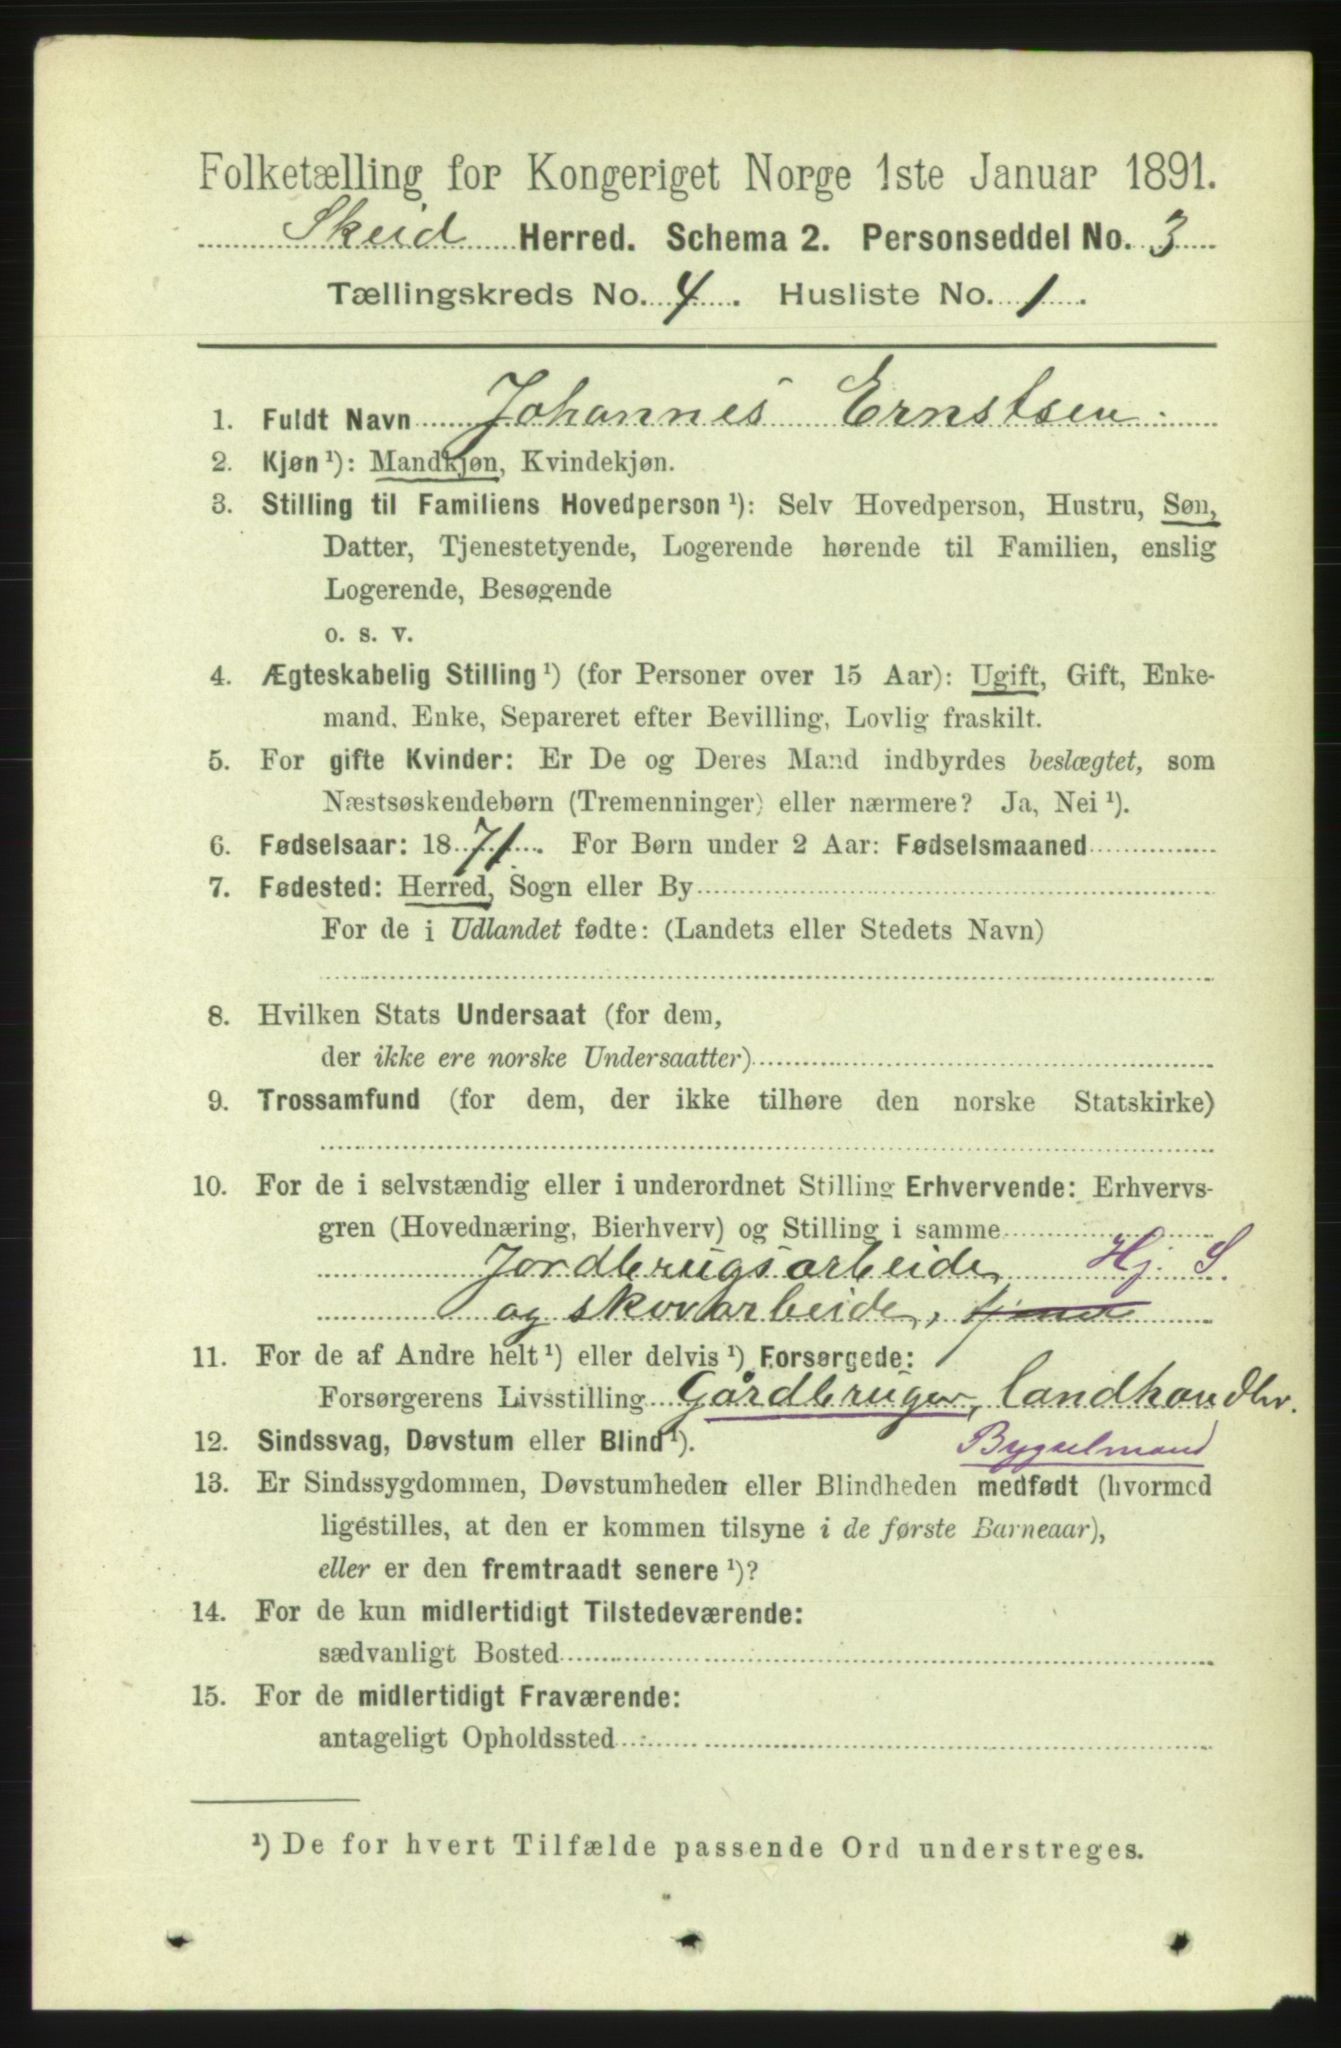 Folketælling for Kongeriget Norge 1ste Januar 1891.
Skeid Herred. Schema 2. Personseddel No. 3
Tællingskreds No. 4. Husliste No. 1.
1. Fuldt Navn Johannes Ernstsen.
2. Kjøn ¹): Mandkjøn, Kvindekjøn.
3. Stilling til Familiens Hovedperson ¹): Selv Hovedperson, Hustru, Søn,
Datter, Tjenestetyende, Logerende hørende til Familien, enslig
Logerende, Besøgende
o. s. v.
4. Ægteskabelig Stilling ¹) (for Personer over 15 Aar): Ugift, Gift, Enke-
mand, Enke, Separeret efter Bevilling, Lovlig fraskilt.
5. For gifte Kvinder: Er De og Deres Mand indbyrdes beslægtet, som
Næstsøskendebørn (Tremenninger) eller nærmere? Ja, Nei ¹).
6. Fødselsaar: 1871. For Børn under 2 Aar: Fødselsmaaned
7. Fødested: Herred, Sogn eller By
For de i Udlandet fødte: (Landets eller Stedets Navn)
8. Hvilken Stats Undersaat (for dem,
der ikke ere norske Undersaatter)
9. Trossamfund (for dem, der ikke tilhøre den norske Statskirke)
10. For de i selvstændig eller i underordnet Stilling Erhvervende: Erhvervs-
gren (Hovednæring, Bierhverv) og Stilling i samme
Jordbrugsarbeide Hj. S.
og skovarbeide,
11. For de af Andre helt ¹) eller delvis ¹) Forsørgede:
Forsørgerens Livsstilling Gårdbruger, landhandler.
12. Sindssvag, Døvstum eller Blind ¹). Bygselmand
13. Er Sindssygdommen, Døvstumheden eller Blindheden medfødt (hvormed
ligestilles, at den er kommen tilsyne i de første Barneaar),
eller er den fremtraadt senere ¹)?
14. For de kun midlertidigt Tilstedeværende:
sædvanligt Bosted
15. For de midlertidigt Fraværende:
antageligt Opholdssted
¹) De for hvert Tilfælde passende Ord understreges.